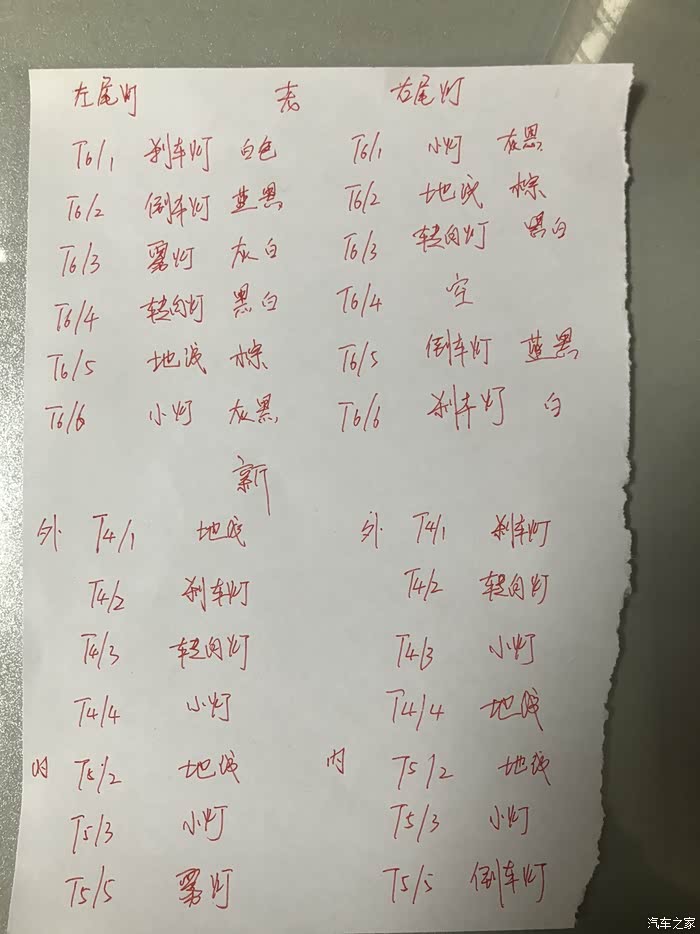 左尾灯 老 右尾灯
T6/1 刹车灯 白色 T6/1 小灯 灰黑
T6/2 倒车灯 蓝黑 T6/2 地线 棕
T6/3 雾灯 灰白 T6/3 转向灯 黑白
T6/4 转向灯 黑白 T6/4 空
T6/5 地线 棕 T6/5 倒车灯 蓝黑
T6/6 小灯 灰黑 T6/6 刹车灯 白
新
外 T4/1 地线 外 T4/1 刹车灯
T4/2 刹车灯 T4/2 转向灯
T4/3 转向灯 T4/3 小灯
T4/4 小灯 T4/4 地线
内 T5/2 地线 内 T5/2 地线
T5/3 小灯 T5/3 小灯
T5/5 雾灯 T5/5 倒车灯
汽车之家